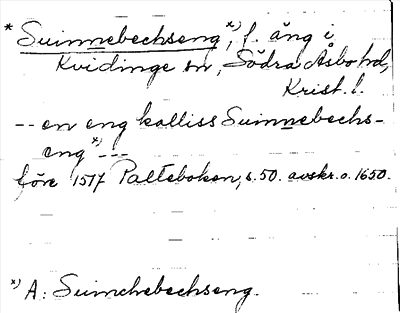 * Suinnebechseng *), f. äng i
Kvidinge sn, Södra Åsbo hd,
Krist. l.
-- en eng kalliss Suinnebechs-
eng *) ---
före 1577 Palteboken, s. 50. avskr. o. 1650.
*) A: Suinchebechseng.